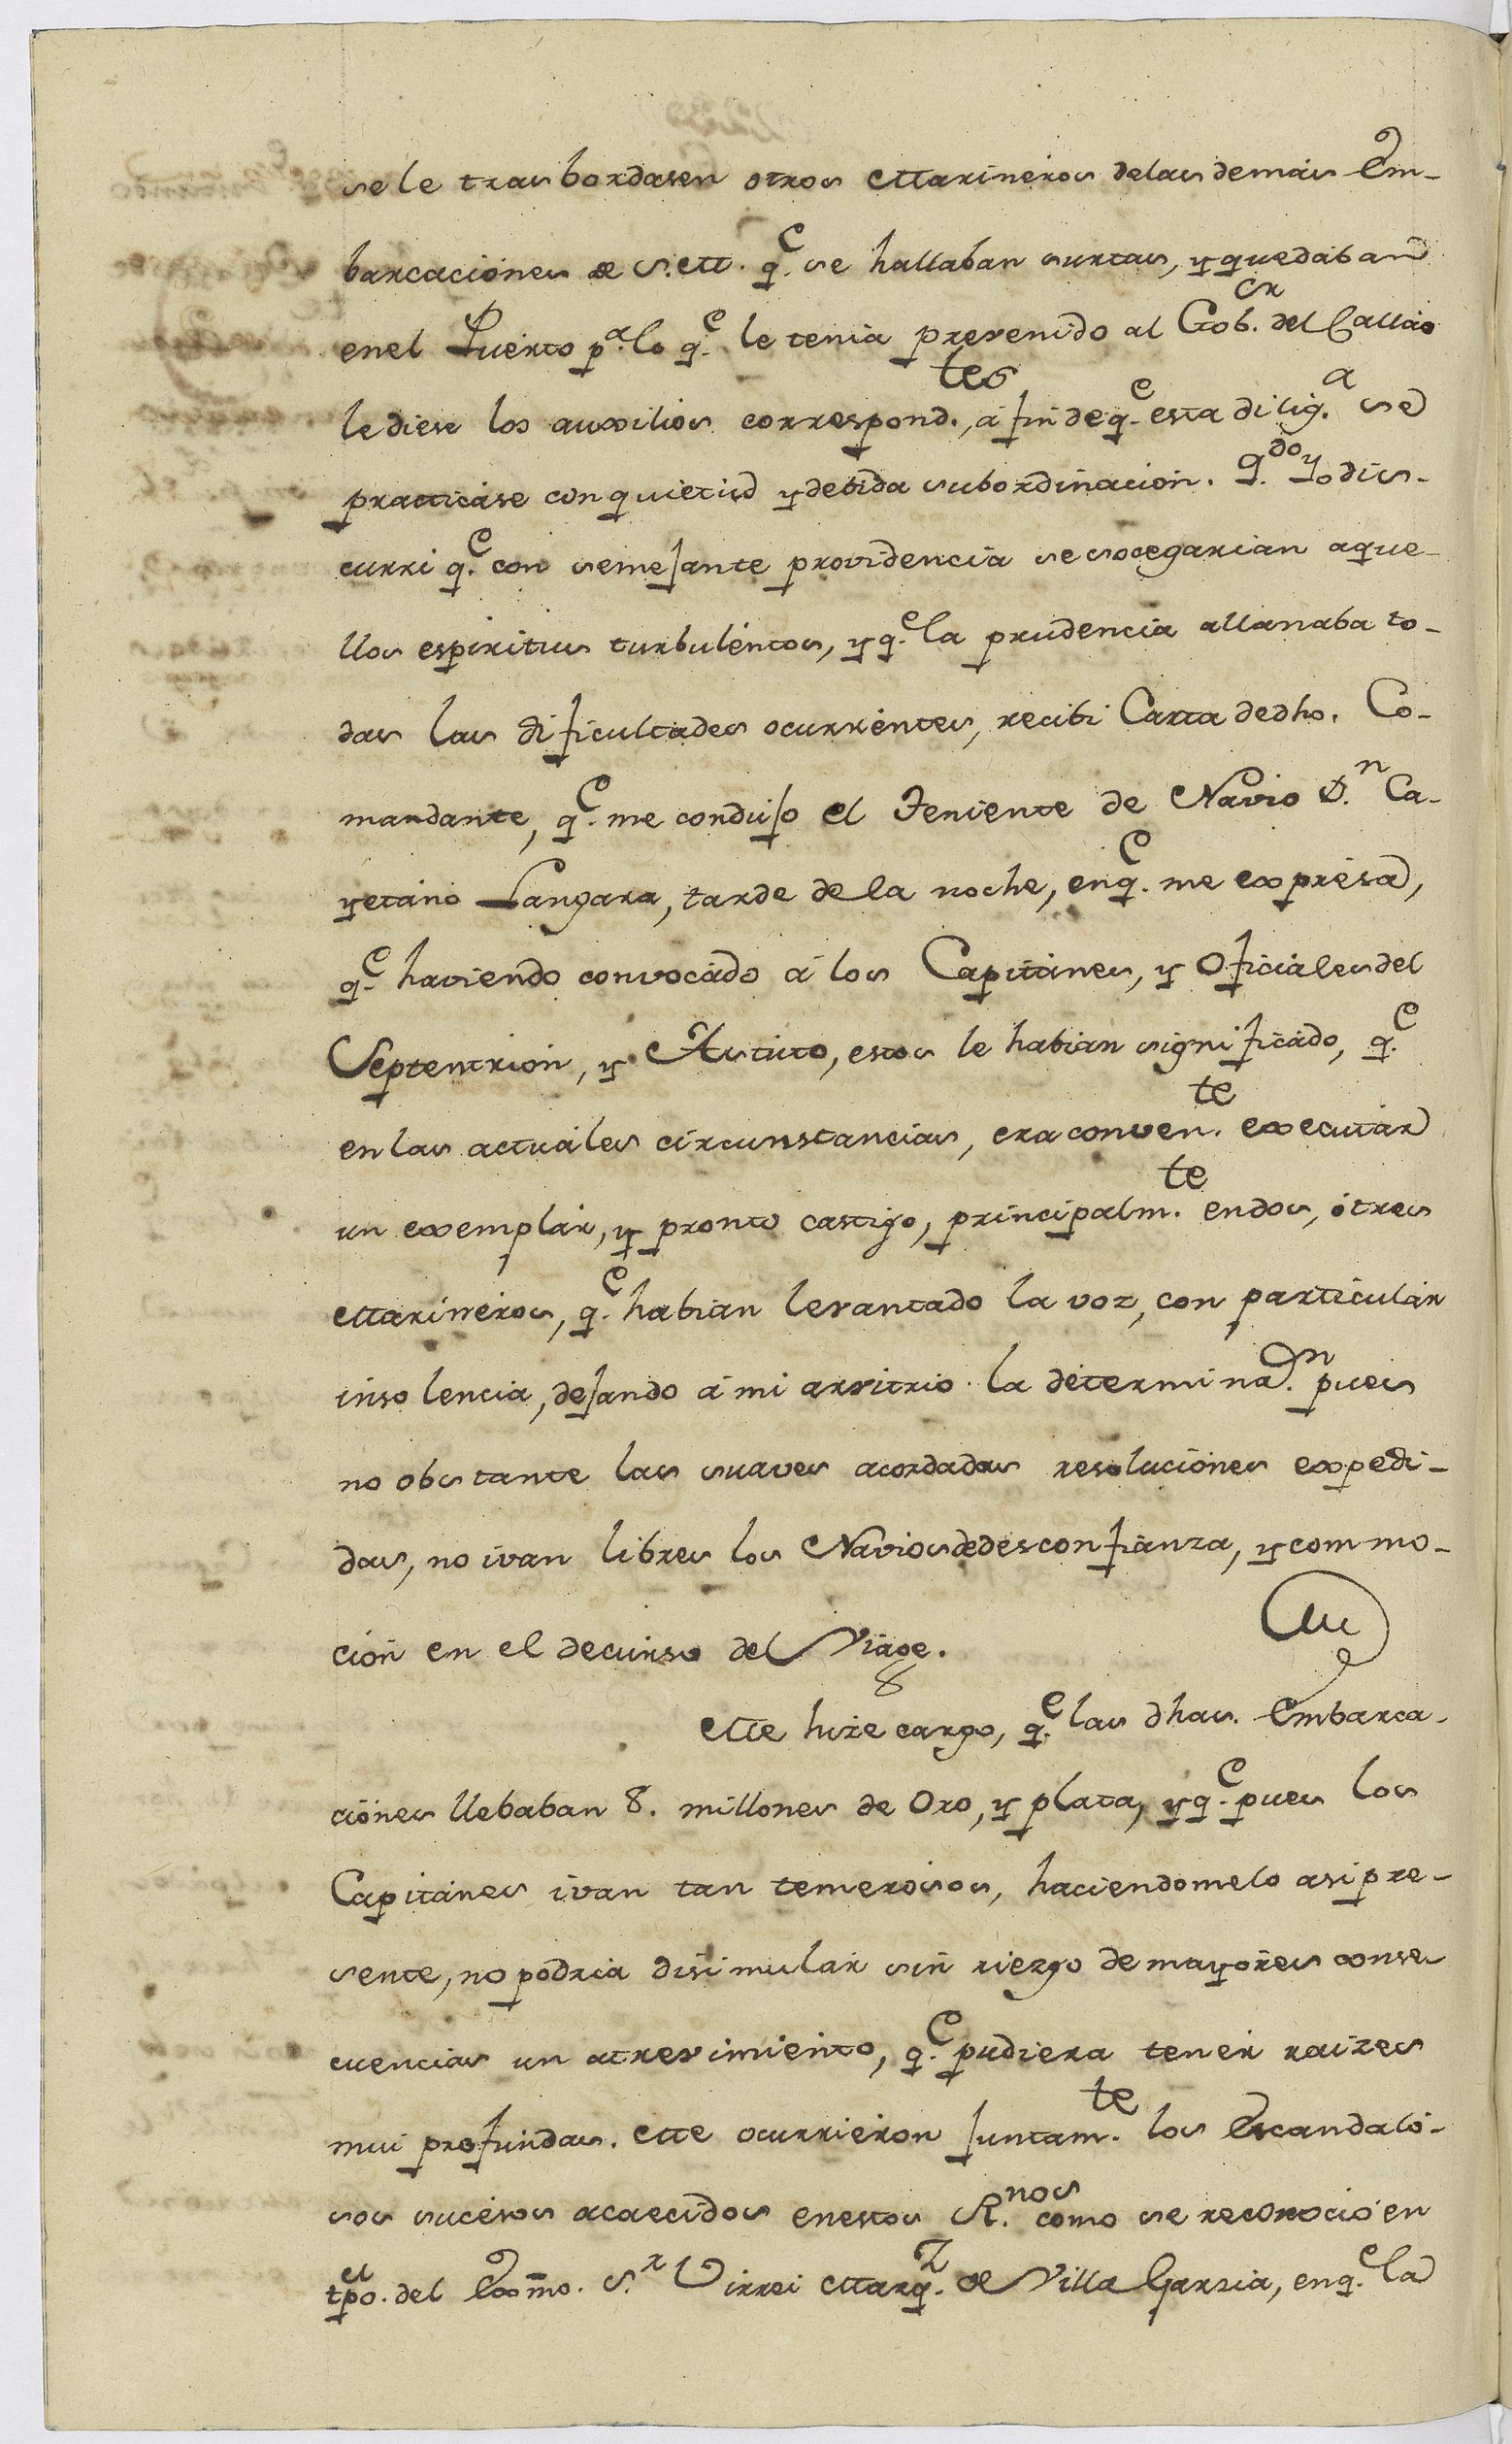 se le trasbordasen otros Marineros delas demás Em-
barcaciónes de S.M. q.e se hallaban surtas, y quedaban
enel Puerto p.a lo q.e le tenia prevenido al Gob.or del Callào
le diese los auxilios correspond.tes, á fin de q.e esta dilig.a se
practicáse con quietud y debida subordinación. Q.do Yo dis-
curri q.e con semejante providencia se socegarian aque-
llos espiritus turbuléntos, y q.e la prudencia allanaba to-
das las dificultades ocurréntes, recibi Carta de dho. Co-
mandante, q.e me condujo el Teniente de Navio D.n Ca-
yetáno Langara, tarde de la noche, en q.e me exprésa,
q.e haviendo convocádo á los Capitánes, y Oficiales del
Septentrión, y Astúto, estos le habian significádo, q.e
en las actuáles circunstancias, era conven.te executár
un exemplár, y pronto castigo, principalm.te en dos, ó tres
Marinéros, q.e habian levantado la voz, con particulár
insolencia, dejando á mi arvitrio la determina.on pues
no obstante las suaves acordadas resolucíónes expedi-
das, no ivan libres los Navios de desconfianza, y commo-
ción en el decurso del Viage.
Me hize cargo, q.e las dhas. Embarca-
ciónes llebaban 8. millones de Oro, y plata, y q.e pues los
Capitánes ivan tan temerosos, haciendomelo asi pre-
sente, no pódria disimulár sin riezgo de mayóres conse-
cuencias un atrevimiento, q.e pudiera tenér raízes
mui profundas. Me ocurrieron juntam.te los Escandaló-
sos sucésos acaecídos enestos R.nos como se reconoció en
el tpo. del Exmo. S.r Virrei Marq.z de Villa Garzia, en q.e la